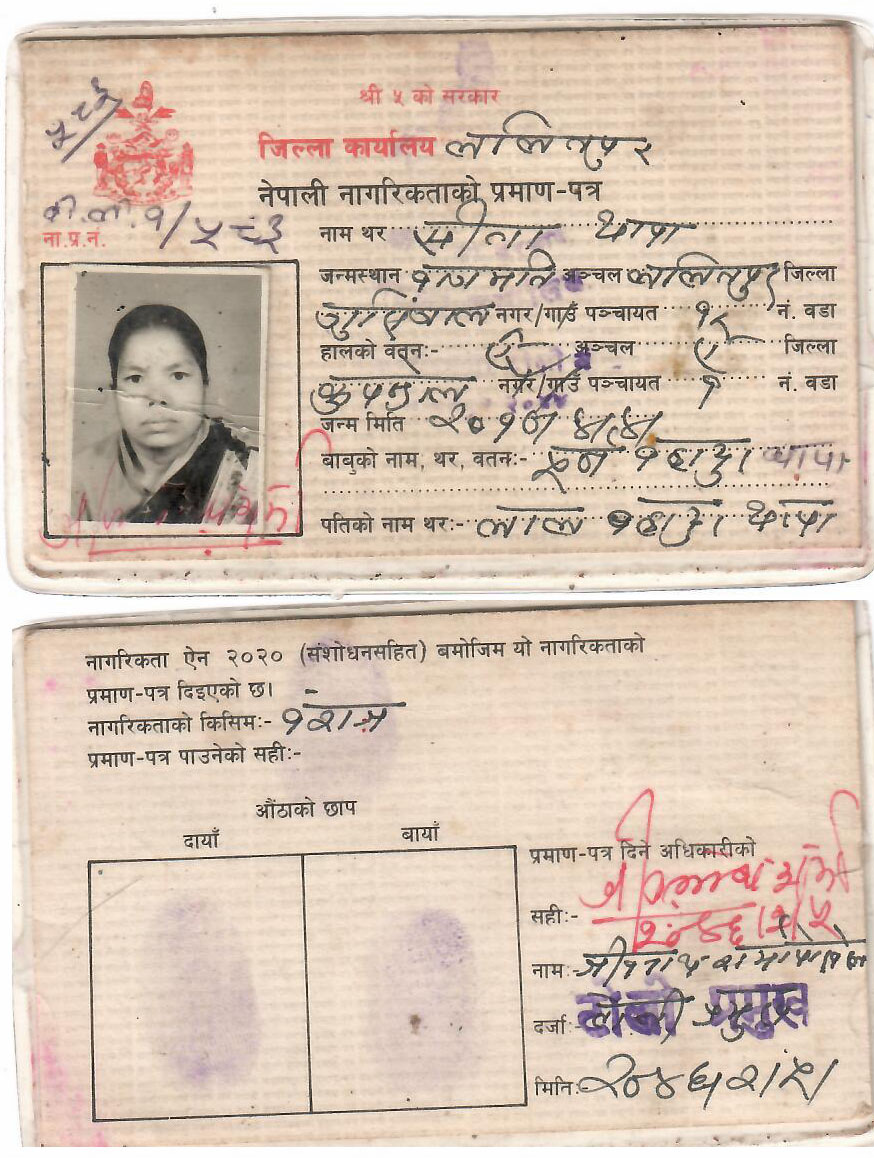 ५८३
श्री ५ को सरकार
जिल्ला कार्यालय ललितपुर
नेपाली नागरिकताको प्रमाण-पत्र
१/५८३
ना.प्र.नं.
नाम थर सीता थापा
जन्मस्थान बागमति अञ्चल ललितपुर जिल्ला
नगर/गाउँ पञ्चायत नं. वडा
हालको वतनः- ऐ अञ्चल ऐ जिल्ला
नगर/गाउँ पञ्चायत १ नं. वडा
जन्म मिति
बाबुको नाम, थर, वतनः- बहादुर थापा
पतिको नाम थरः- लाल बहादुर थापा
नागरिकता ऐन २०२० (संशोधनसहित) बमोजिम यो नागरिकताको
प्रमाण-पत्र दिइएको छ।
नागरिकताको किसिमः- वंशज
प्रमाण-पत्र पाउनेको सहीः-
औंठाको छाप
दायाँ बायाँ
प्रमाण-पत्र दिने अधिकारीको
सहीः-
२०४६।२।५
नामः
दर्जाः टोली प्रमुख
मितिः २०४६।२।५